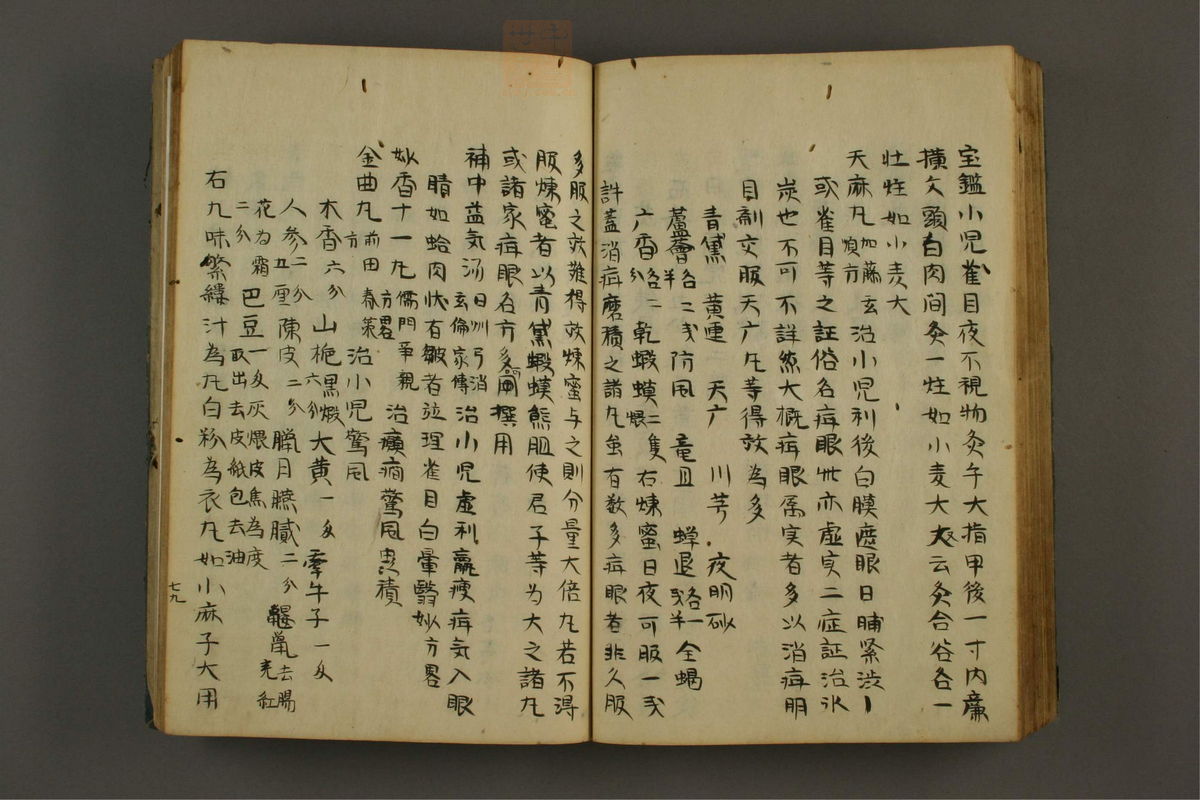 宝鑑小児雀目夜不視物灸手大指甲後一寸内廉
横文頭白肉間灸一炷如小麦大又云灸合谷各一
壮炷如小麦大
天麻丸加藤玄順方治小児利後白膜遮眼日晡緊渋
或雀目等之証俗名疳眼世亦虚実二症証治氷
炭也不可不詳然大概疳眼属実者多以消疳明
目剤交服天广丸等得效為多
青黛 黄連 天广 川芎 夜明砂
蘆薈各二戔半 防風 竜胆 蝉退各一戔半 全蝎
广香各二分 乾蝦蟆二隻煨 右煉蜜日夜可服一戔
許蓋消疳磨積之諸丸虽有数多疳眼者非久服
多服之效難得故煉蜜与之則分量大倍丸若不得
服煉蜜者以青黛蝦蟆熊胆使君子等为大之諸丸
或諸家疳眼名方多可撰用
補中益気湯 玄倫家傳 治小児虚利羸痩疳気入眼
睛如蛤肉状有皺者並理雀目白暈翳妙方畧
妙香十一丸儒門事親方畧 治癲癇驚風患積
金曲丸前田春策方 治小児驚風
木香六分 山梔黒煅六分 大黄一匁 牽牛子一匁
人参二分五厘 陳皮二分 臘月臙膩二分 鼴鼠去腸
花为霜 巴豆一匁灰煨皮焦為度
二分 取出去皮紙包去油
右九味繁縷汁為丸白粉為衣丸如小麻子大用
七九